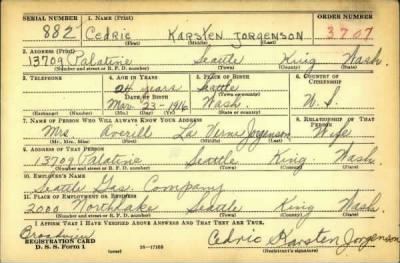 SERIAL NUMBER 1. NAME (Print) ORDER NUMBER
882 Cedric Karsten Jorgenson 3707
(First) (Middle) (Last)
2. ADDRESS (Print)
13709 Palatine Seattle King Wash.
(Number and street or R. F. D. number) (Town) (County) (State)
3. TELEPHONE 4. AGE IN YEARS 5. PLACE OF BIRTH 6. COUNTRY OF CITIZENSHIP
24 years Seattle
DATE OF BIRTH (Town or county)
Mar. 23-1916 Wash. U.S.
(Exchange) (No.) (Mo.) (Day) (Yr.) (State or country)
7. NAME OF PERSON WHO WILL ALWAYS KNOW YOUR ADDRESS 8. RELATIONSHIP OF THAT PERSON
Mrs. Averill La Verne Jorgenson Wife
(Mr., Mrs., Miss) (First) (Middle) (Last)
9. ADDRESS OF THAT PERSON
13709 Palatine Seattle King Wash.
(Number and street or R. F. D. number) (Town) (County) (State)
10. EMPLOYER'S NAME
Seattle Gas Company
11. PLACE OF EMPLOYMENT OR BUSINESS
2000 Northlake Seattle King Wash.
(Number and street or R. F. D. number) (Town) (County) (State)
I AFFIRM THAT I HAVE VERIFIED ABOVE ANSWERS AND THAT THEY ARE TRUE.
REGISTRATION CARD
D. S. S. Form 1 (over) 16-17105 Cedric Karsten Jorgenson